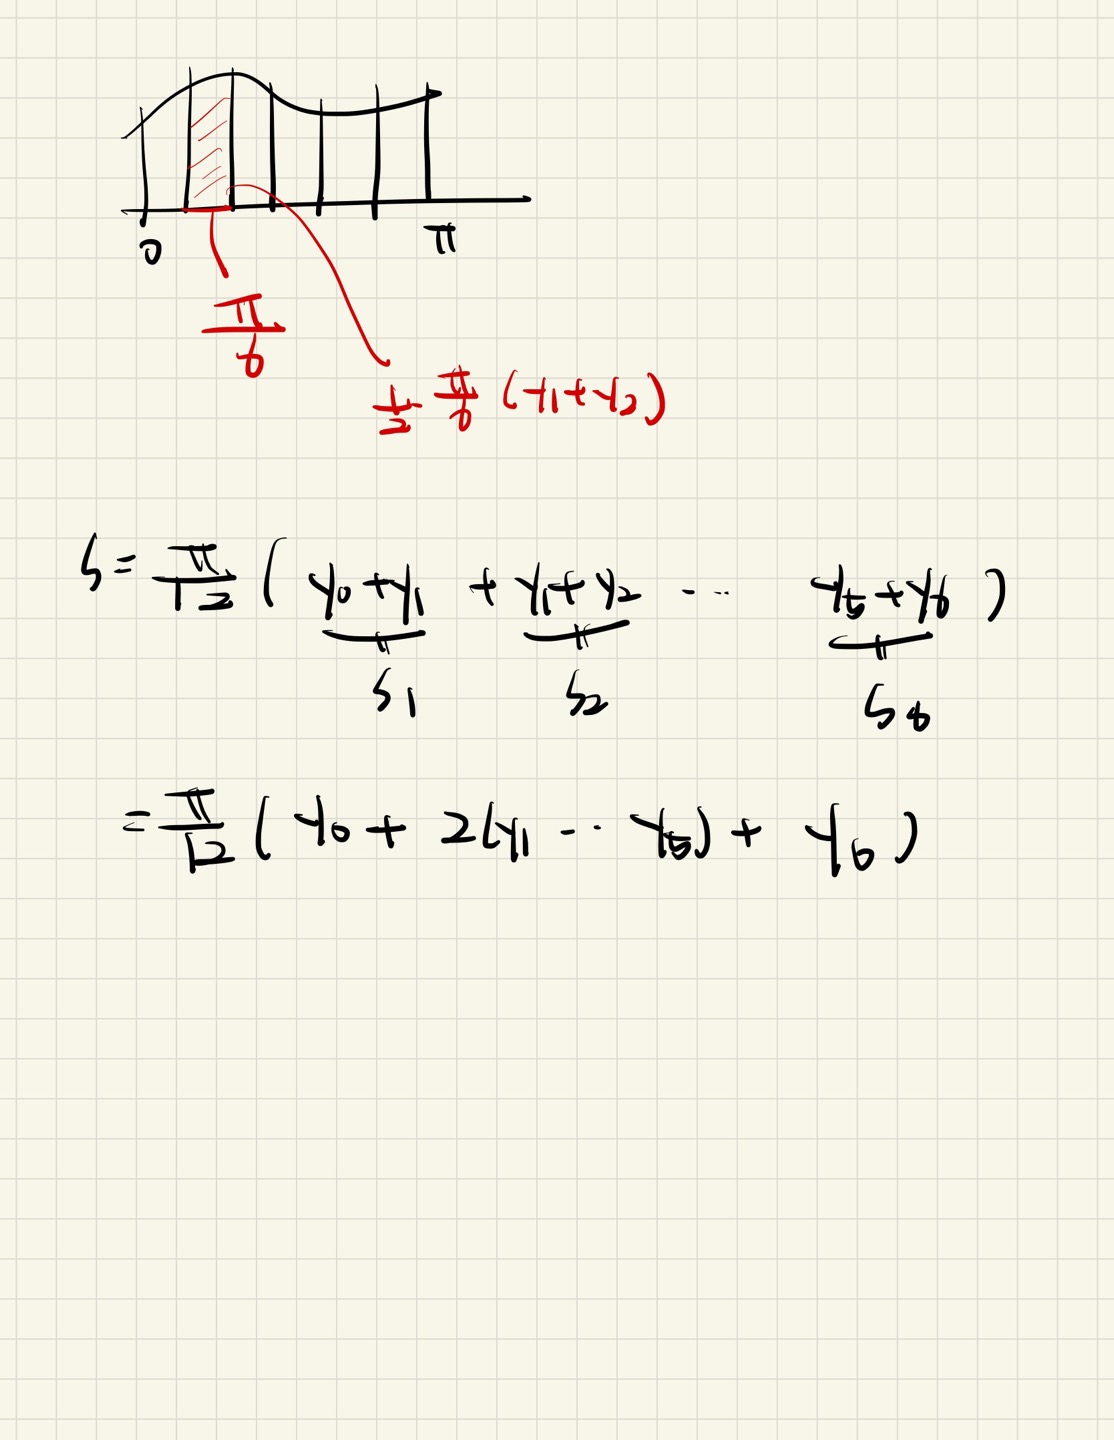 0 π
π/6
1/2 π/6 (y₁+y₂)
S = π/12 ( y₀+y₁ + y₁+y₂ ... y₅+y₆ )
S₁ S₂ S₆
= π/12 ( y₀ + 2(y₁ ... y₅) + y₆ )